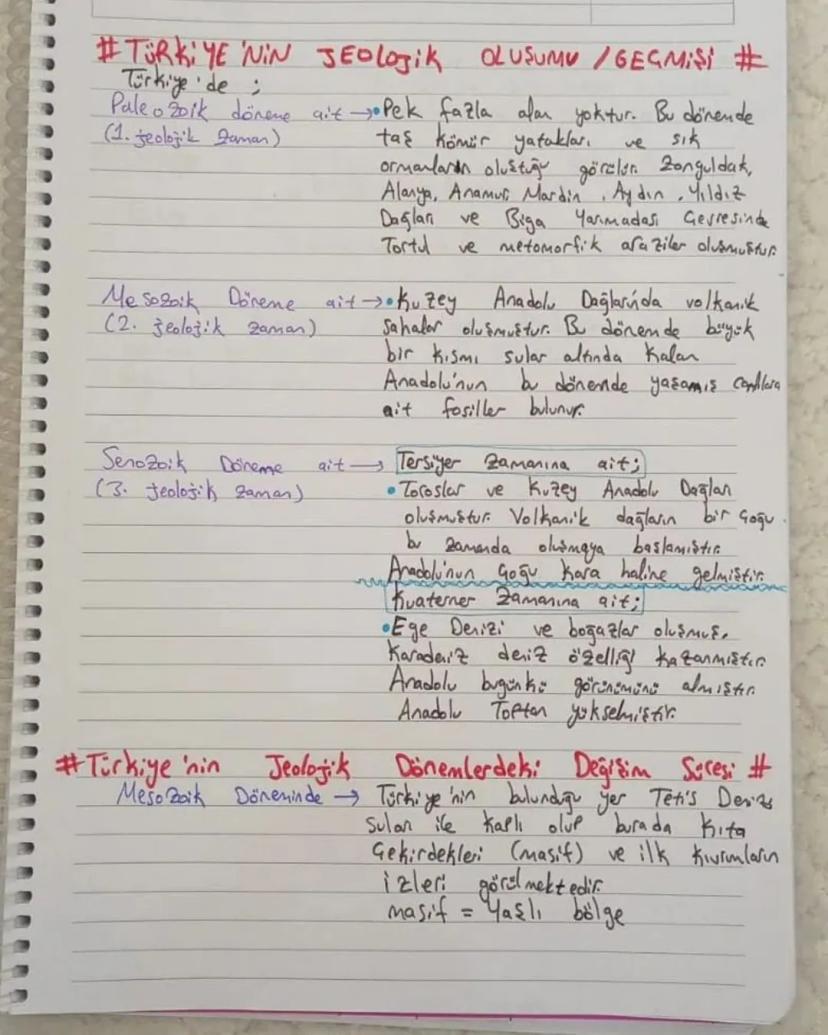 # TÜRKİYE'NİN JEOLOJİK OLUŞUMU / GEÇMİŞİ #
Türkiye'de ;
Paleozoik döneme ait → • Pek fazla alan yoktur. Bu dönemde
(1. jeolojik zaman) taş kömür yatakları ve sık
ormanların oluştuğu görülür. Zonguldak,
Alanya, Anamur, Mardin, Aydın, Yıldız
Dağları ve Biga Yarımadası Çevresinde
Tortul ve metomorfik araziler oluşmuştur.
Mesozoik Döneme ait → • Kuzey Anadolu Dağlarında volkanik
(2. jeolojik zaman) sahalar oluşmuştur. Bu dönemde büyük
bir kısmı sular altında kalan
Anadolu'nun bu dönemde yaşamış canlılara
ait fosiller bulunur.
Senozoik Döneme ait → Tersiyer zamanına ait;
(3. jeolojik zaman) • Toroslar ve Kuzey Anadolu Dağları
oluşmuştur. Volkanik dağların bir çoğu
bu zamanda oluşmaya başlamıştır.
Anadolu'nun çoğu kara haline gelmiştir.
Kuaterner zamanına ait;
• Ege Denizi ve boğazlar oluşmuş,
Karadeniz deniz özelliği kazanmıştır.
Anadolu bugünkü görünümünü almıştır.
Anadolu Toptan yükselmiştir.
# Türkiye'nin Jeolojik Dönemlerdeki Değişim Süresi #
Mesozoik Döneminde → Türkiye'nin bulunduğu yer Tetis Denizi
suları ile kaplı olup burada kıta
Çekirdekleri (masif) ve ilk kıvrımların
izleri görülmektedir.
masif = Yaşlı bölge